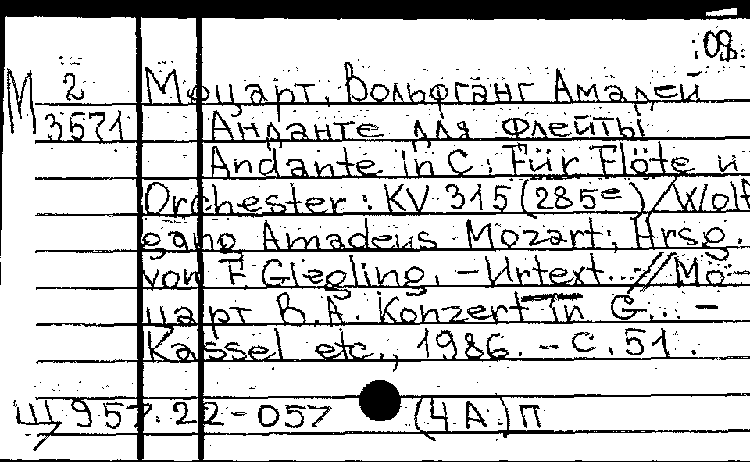 08.
М 2 Моцарт, Вольфганг Амадей
3571 Анданте для флейты
Andante in C : Für Flöte u
Orchester : KV 315 (285e) / Wolf
gang Amadeus Mozart; Hrsg.
von F. Giegling. – Urtext... // Мо-
царт В.А. Konzert in G... –
Kassel etc., 1986. – С. 51.
Щ 957.22-057 (4А) П